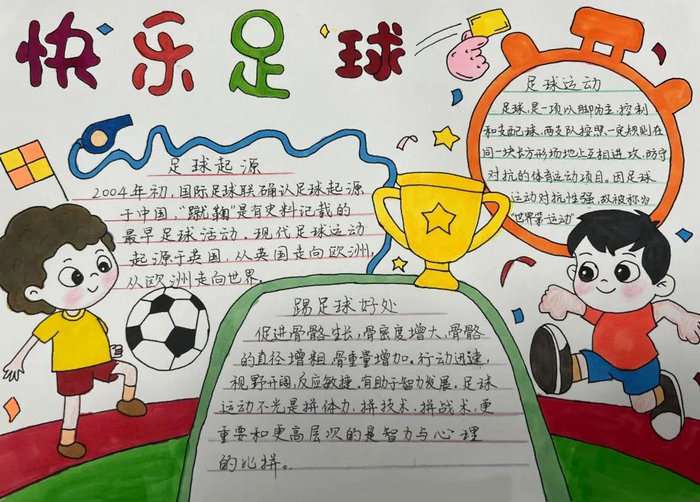 快乐足球
足球起源
2004年初，国际足球联确认足球起源
于中国，“蹴鞠”是有史料记载的
最早足球活动。现代足球运动
起源于英国，从英国走向欧洲，
从欧洲走向世界。
足球运动
足球，是一项以脚为主，控制
和支配球，两支队按照一定规则在
同一块长方形场地上互相进攻，防守
对抗的体育运动项目。因足球
运动对抗性强，故被称为
“世界第一运动”
踢足球好处
促进骨骼生长，骨密度增大，骨骼
的直径增粗，骨重量增加。行动迅速，
视野开阔，反应敏捷，有助于智力发展，足球
运动不光是拼体力，拼技术，拼战术，更
重要和更高层次的是智力与心理
的比拼。